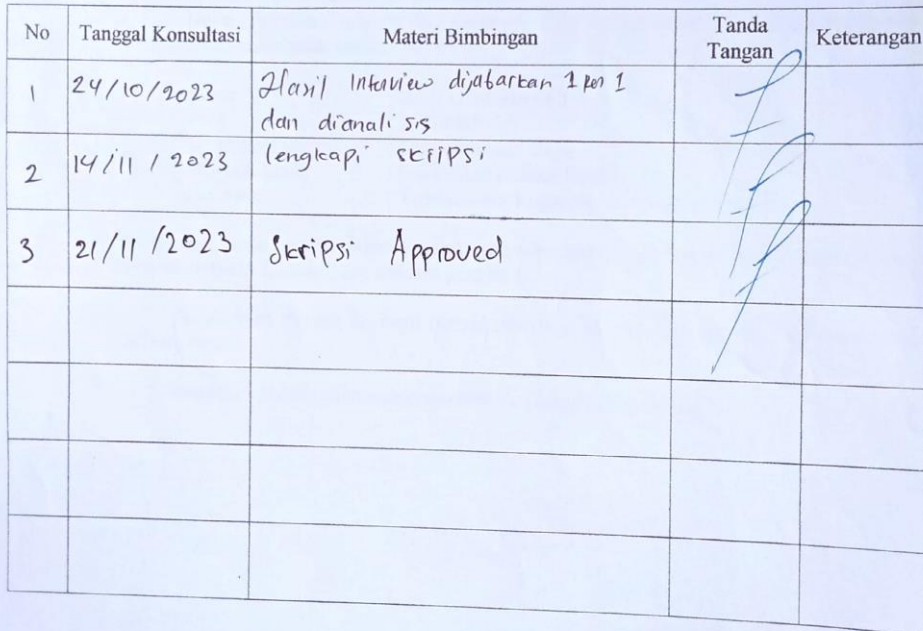 No Tanggal Konsultasi Materi Bimbingan Tanda Tangan Keterangan
1 24/10/2023 Hasil Interview dijabarkan 1 per 1
dan dianalisis
2 14/11/2023 lengkapi skripsi
3 21/11/2023 Skripsi Approved